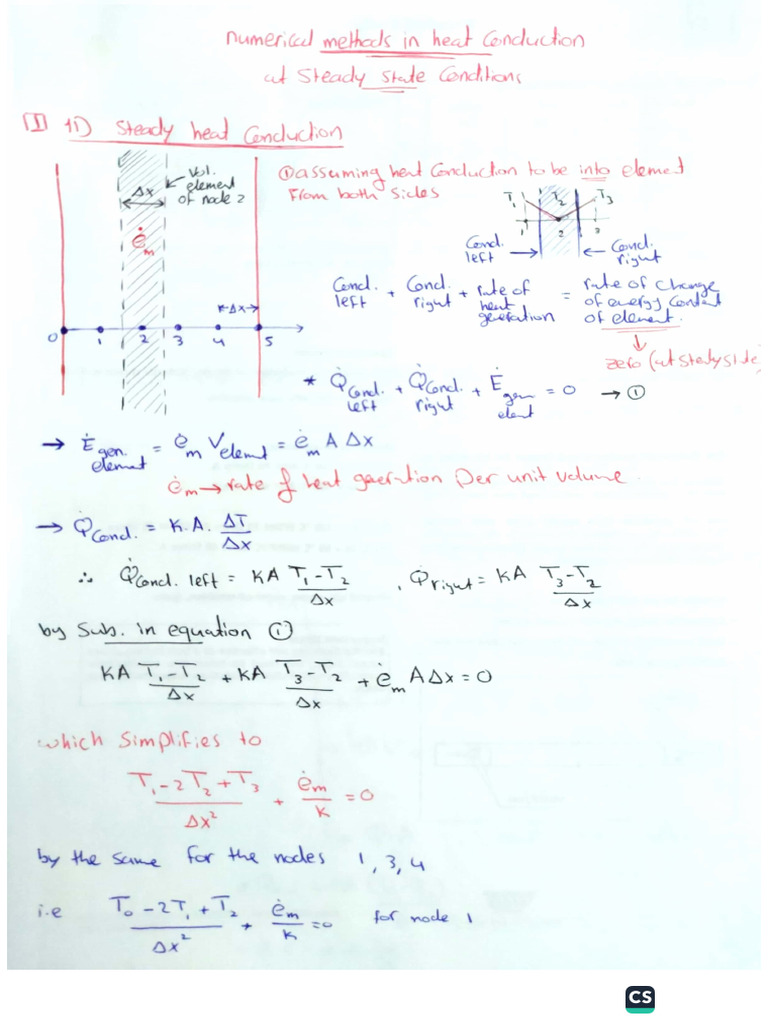 numerical methods in heat Conduction
at Steady State Conditions
I 1) Steady heat Conduction
Δx
Vol. element of node 2
ė_m
Δx
0 1 2 3 4 5
① assuming heat Conduction to be into element
From both Sides
T₁ T₂ T₃
1 2 3
Cond. left → ← Cond. right
Cond. left + Cond. right + rate of heat generation = rate of change of energy content of element.
↓
zero (at Steady Side)
* Q̇ Cond. left + Q̇ Cond. right + Ė gen elemt = 0 → ①
→ Ė gen. elemnt = ė_m V elemnt = ė_m A Δx
ė_m → rate of heat geertion Per unit volume.
→ Q̇ Cond. = K.A. ΔT/Δx
∴ Q̇ Cond. left = KA (T₁-T₂)/Δx , Q̇ right = KA (T₃-T₂)/Δx
by Sub. in equation ①
KA (T₁-T₂)/Δx + KA (T₃-T₂)/Δx + ė_m A Δx = 0
which Simplifies to
(T₁-2T₂+T₃)/Δx² + ė_m/K = 0
by the same for the nodes 1, 3, 4
i.e (T₀-2T₁+T₂)/Δx² + ė_m/K = 0 for node 1
CS